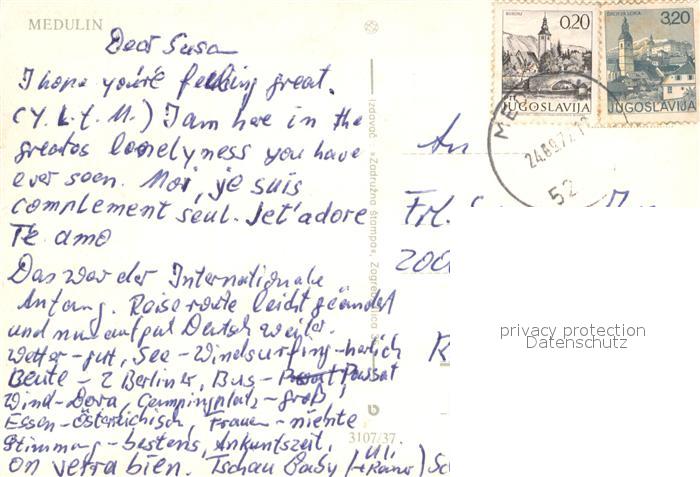 MEDULIN
Dear Susa
I hope you're feeling great.
(Y. L. t. M.) I am hee in the
greatos lonelyness you have
ever seen. Moi, je suis
complement seul. Jet'adore
Te amo
Das war der Internationale
Anfang. Reiseroute leicht geändert
und nun auf gut Deutsch weiter.
Wetter - gut, See - Windsurfing - herlich
Beute - 2 Berliner, Bus - Passat
Wind - Dora, Campingplatz - groß,
Essen - Östereichisch, Frauen - niehte
Stimmung - bestens, Ankuntszeit,
on verra bien. Tschau Baby
Izdavač: »Zadružna štampa«, Zagreb
3107/37
0,20
JUGOSLAVIJA
3,20
ŠKOFJA LOKA
JUGOSLAVIJA
52
An
Frl.
privacy protection
Datenschutz